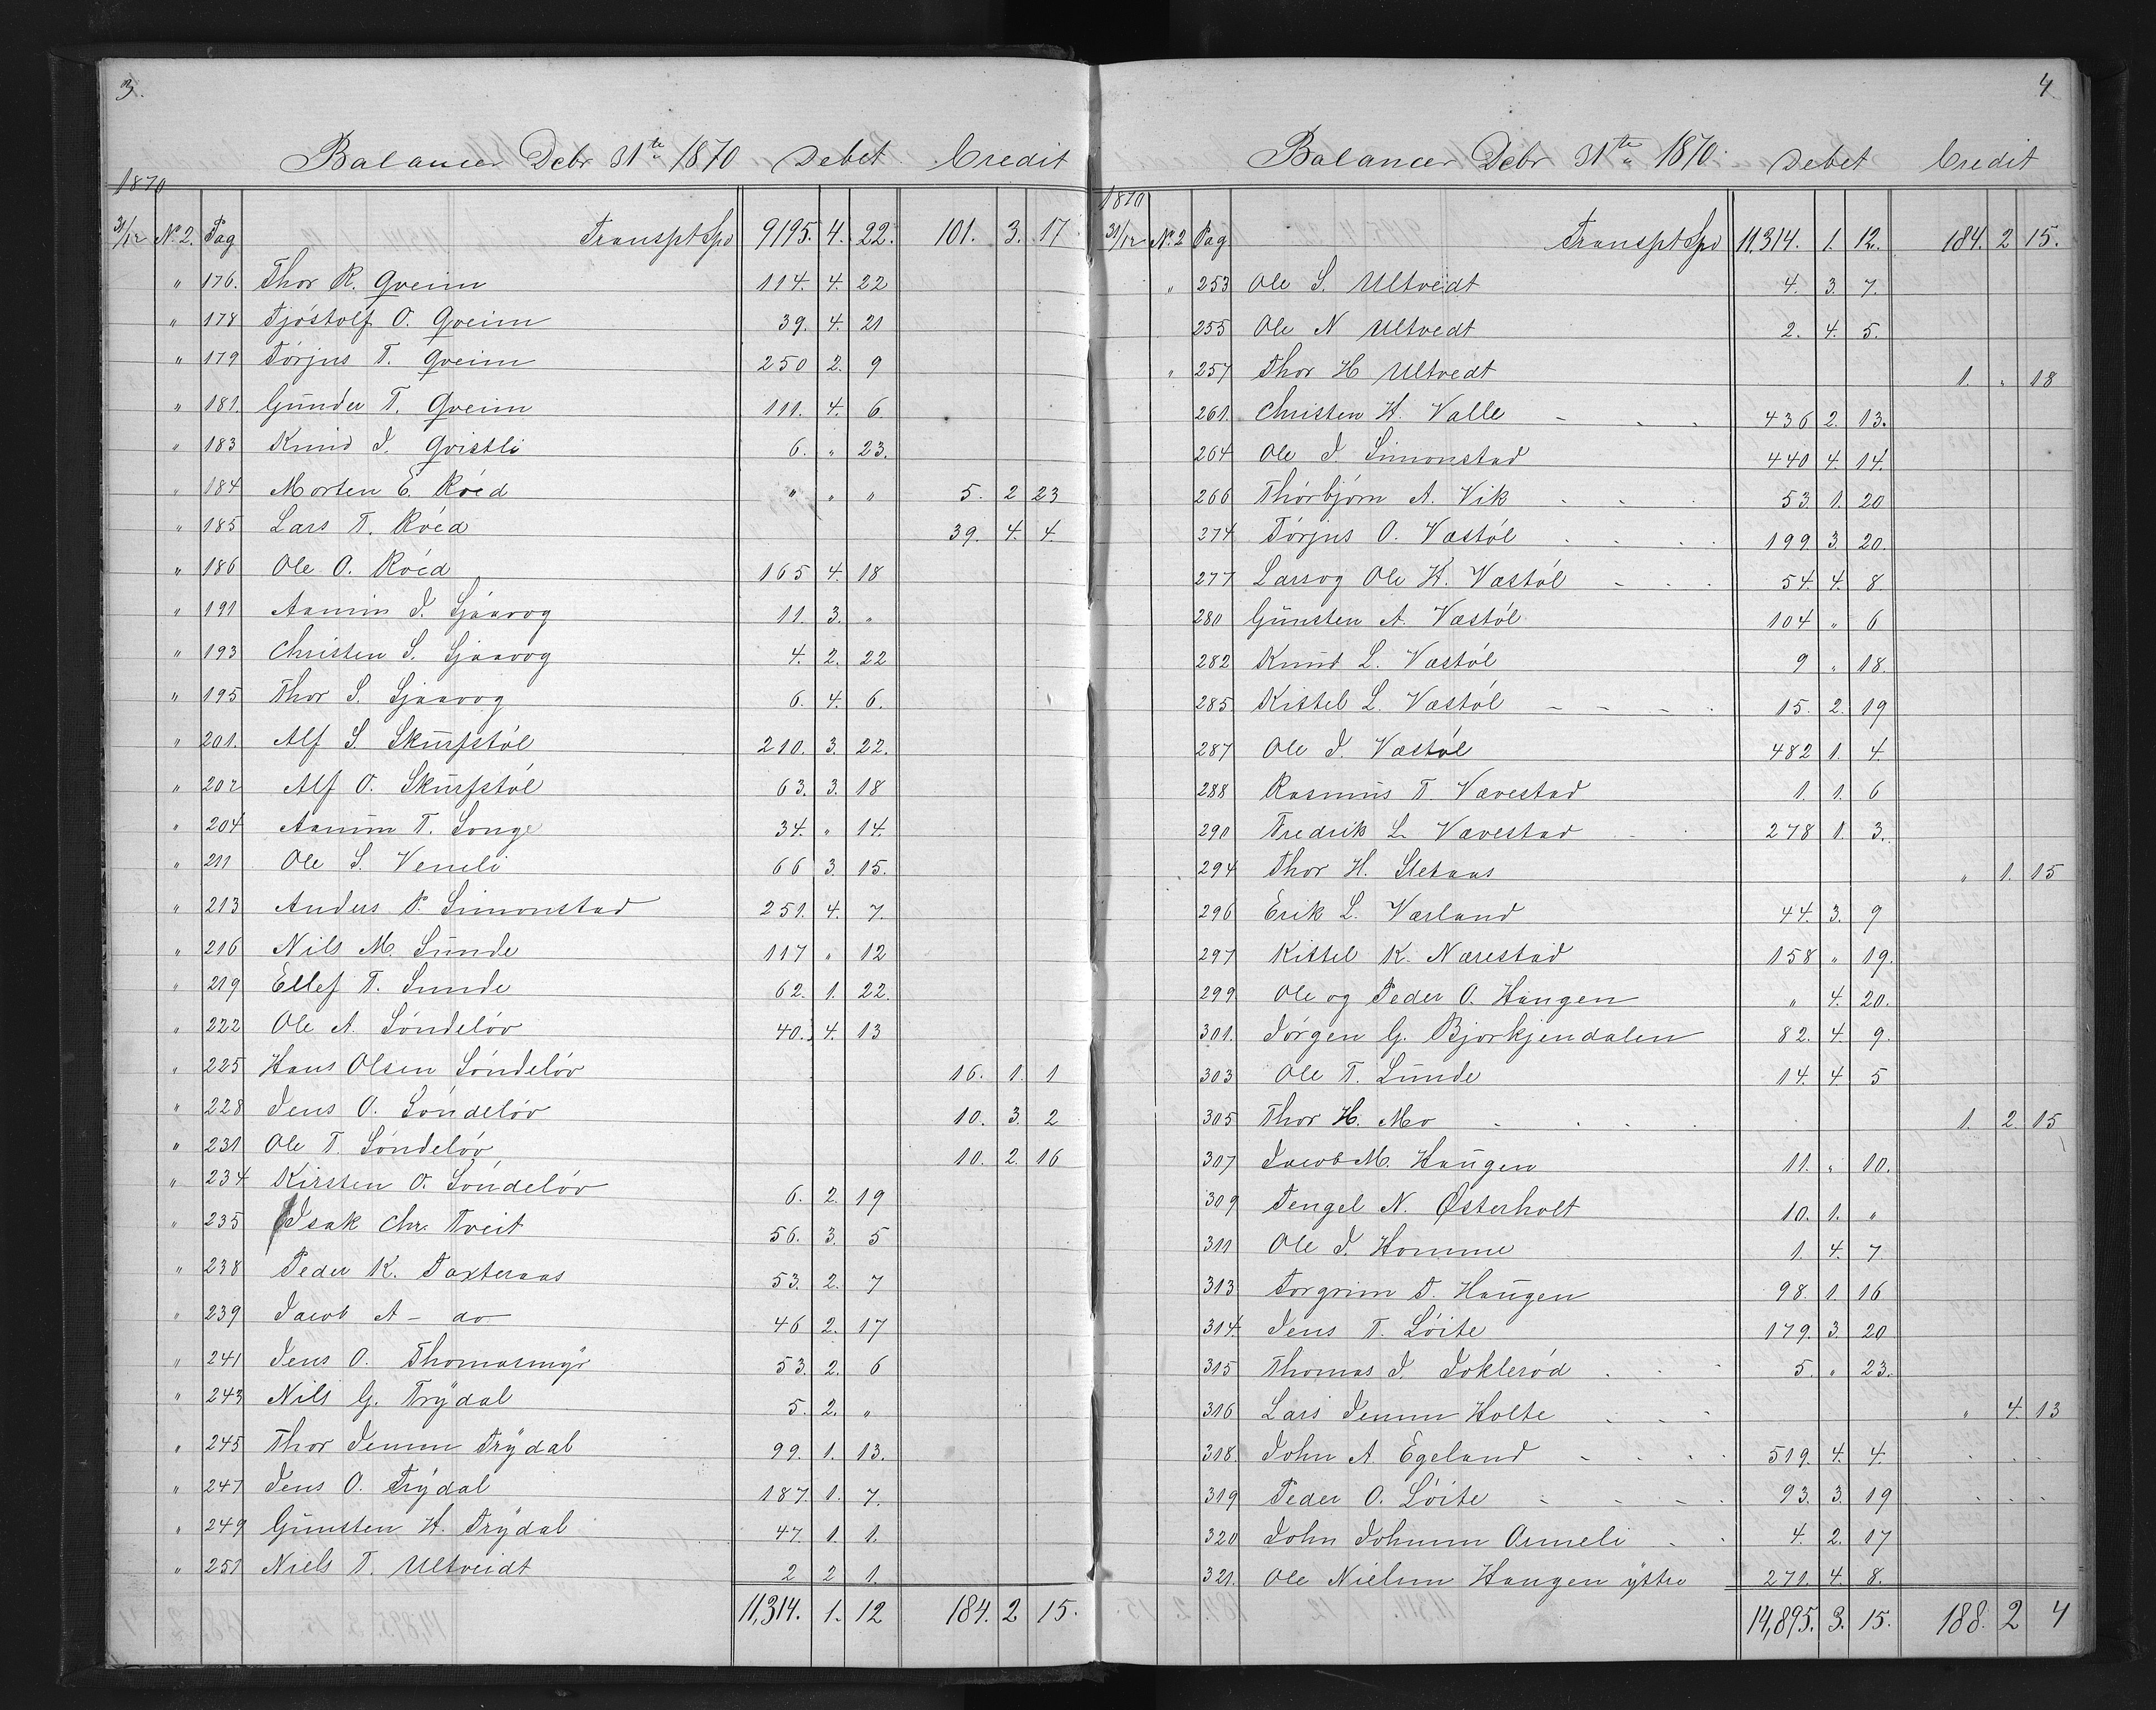 3.
Balancer Debr 31te 1870 Debet Credit
1870
31/12 No 2. Pag Transpt Spd 9195. 4. 22. 101. 3. 17
" 176. Thor R. Qveim 114. 4. 22
" 178 Tjóstolf O. Qveim 39. 4. 21
" 179 Tórjus T. Qveim 250 2. 9
" 181. Gunder T. Qveim 111. 4. 6.
" 183 Knud J. Qvistli 6. " 23.
" 184 Morten E. Róed " " " 5. 2 23
" 185 Lars T. Róed 39. 4. 4.
" 186 Ole O. Róed 165 4. 18
" 191 Aanun J. Sjaavog 11. 3. "
" 193 Christen S. Sjaavog 4. 2. 22
" 195 Thor S. Sjaavog 6. 4. 6.
" 201. Alf S. Skurfstól 210. 3. 22.
" 202 Alf O. Skurfstól 63. 3. 18
" 204 Aanun T. Songe 34. " 14.
" 211 Ole S. Veneli 66 3. 15.
" 213 Anders P. Simonstad 251. 4. 7.
" 216 Nils M. Sunde 117 " 12
" 219 Ellef T. Sunde 62. 1. 22.
" 222 Ole A. Sóndelóv 40. 4. 13
" 225 Hans Olsen Sóndelóv 16. 1. 1
" 228 Jens O. Sóndelóv 10. 3. 2
" 231 Ole T. Sóndelóv 10. 2. 16
" 234 Kirsten O. Sóndelóv 6. 2. 19
" 235 Isak Chr. Tveit 56. 3. 5
" 238 Peder K. Taxteraas 53. 2. 7
" 239 Jacob A - do 46 2. 17
" 241 Jens O. Thomasmyr 53. 2. 6
" 243 Nils G. Trydal 5. 2. "
" 245 Thor Jensen Trydal 99. 1. 13.
" 247 Jens O. Trydal 187. 1. 7.
" 249 Gunsten H. Trydal 47. 1. 1.
" 251 Niels T. Ultveidt 2 2 1.
11,314. 1. 12 184. 2 15.
4
Balancer Debr 31te 1870. Debet Credit
1870
31/12 No 2 Pag Transpt Spd 11,314. 1. 12. 184. 2 15.
" 253 Ole S. Ultvedt 4. 3. 7.
255 Ole N Ultvedt 2. 4. 5.
" 257 Thor H Ultvedt 1. " 18
261. Christen H. Valle 436 2. 13.
264 Ole J. Simonstad 440 4. 14.
266 Thórbjórn A. Vik 53. 1. 20
274 Tórjus O. Vastól 199. 3. 20.
277 Lars og Ole H. Vastól 54. 4. 8.
280 Gunsten A. Vastól 104 " 6
282 Knud L. Vastól 9 " 18.
285 Kittel L. Vastól 15. 2. 19
287 Ole J. Vastól 482 1. 4.
288 Rasmus T. Vavestad 1. 1. 6
290 Fredrik L. Vavestad 278 1. 3.
294 Thor H. Sletaas " 1. 15
296 Erik L. Varland 44. 3. 9
297 Kittel K. Narestad 158 " 19.
299 Ole og Peder O. Haugen " 4. 20.
301. Jórgen G. Bjorkjendalen 82. 4. 9.
303 Ole T. Lunde 14. 4 5
305 Thor H. Mo 1. 2. 15
307 Jacob M. Haugen 11. " 10.
309 Tengel N. Østerholt 10. 1. "
311 Ole J. Homme 1. 4. 7
313 Torgrim T. Haugen 98. 1. 16
314. Jens T. Lóite 179. 3. 20
315 Thomas J. Soklerød 5. " 23.
316 Lars Jensen Holte " 4. 13
318. John A. Egeland 519. 4. 4.
319 Peder O. Lóite 93. 3. 19
320 John Johnsen Asmeli 4. 2. 17
321. Ole Nielsen Haugen yttre 271. 4. 8.
14,895. 3. 15. 188. 2 4